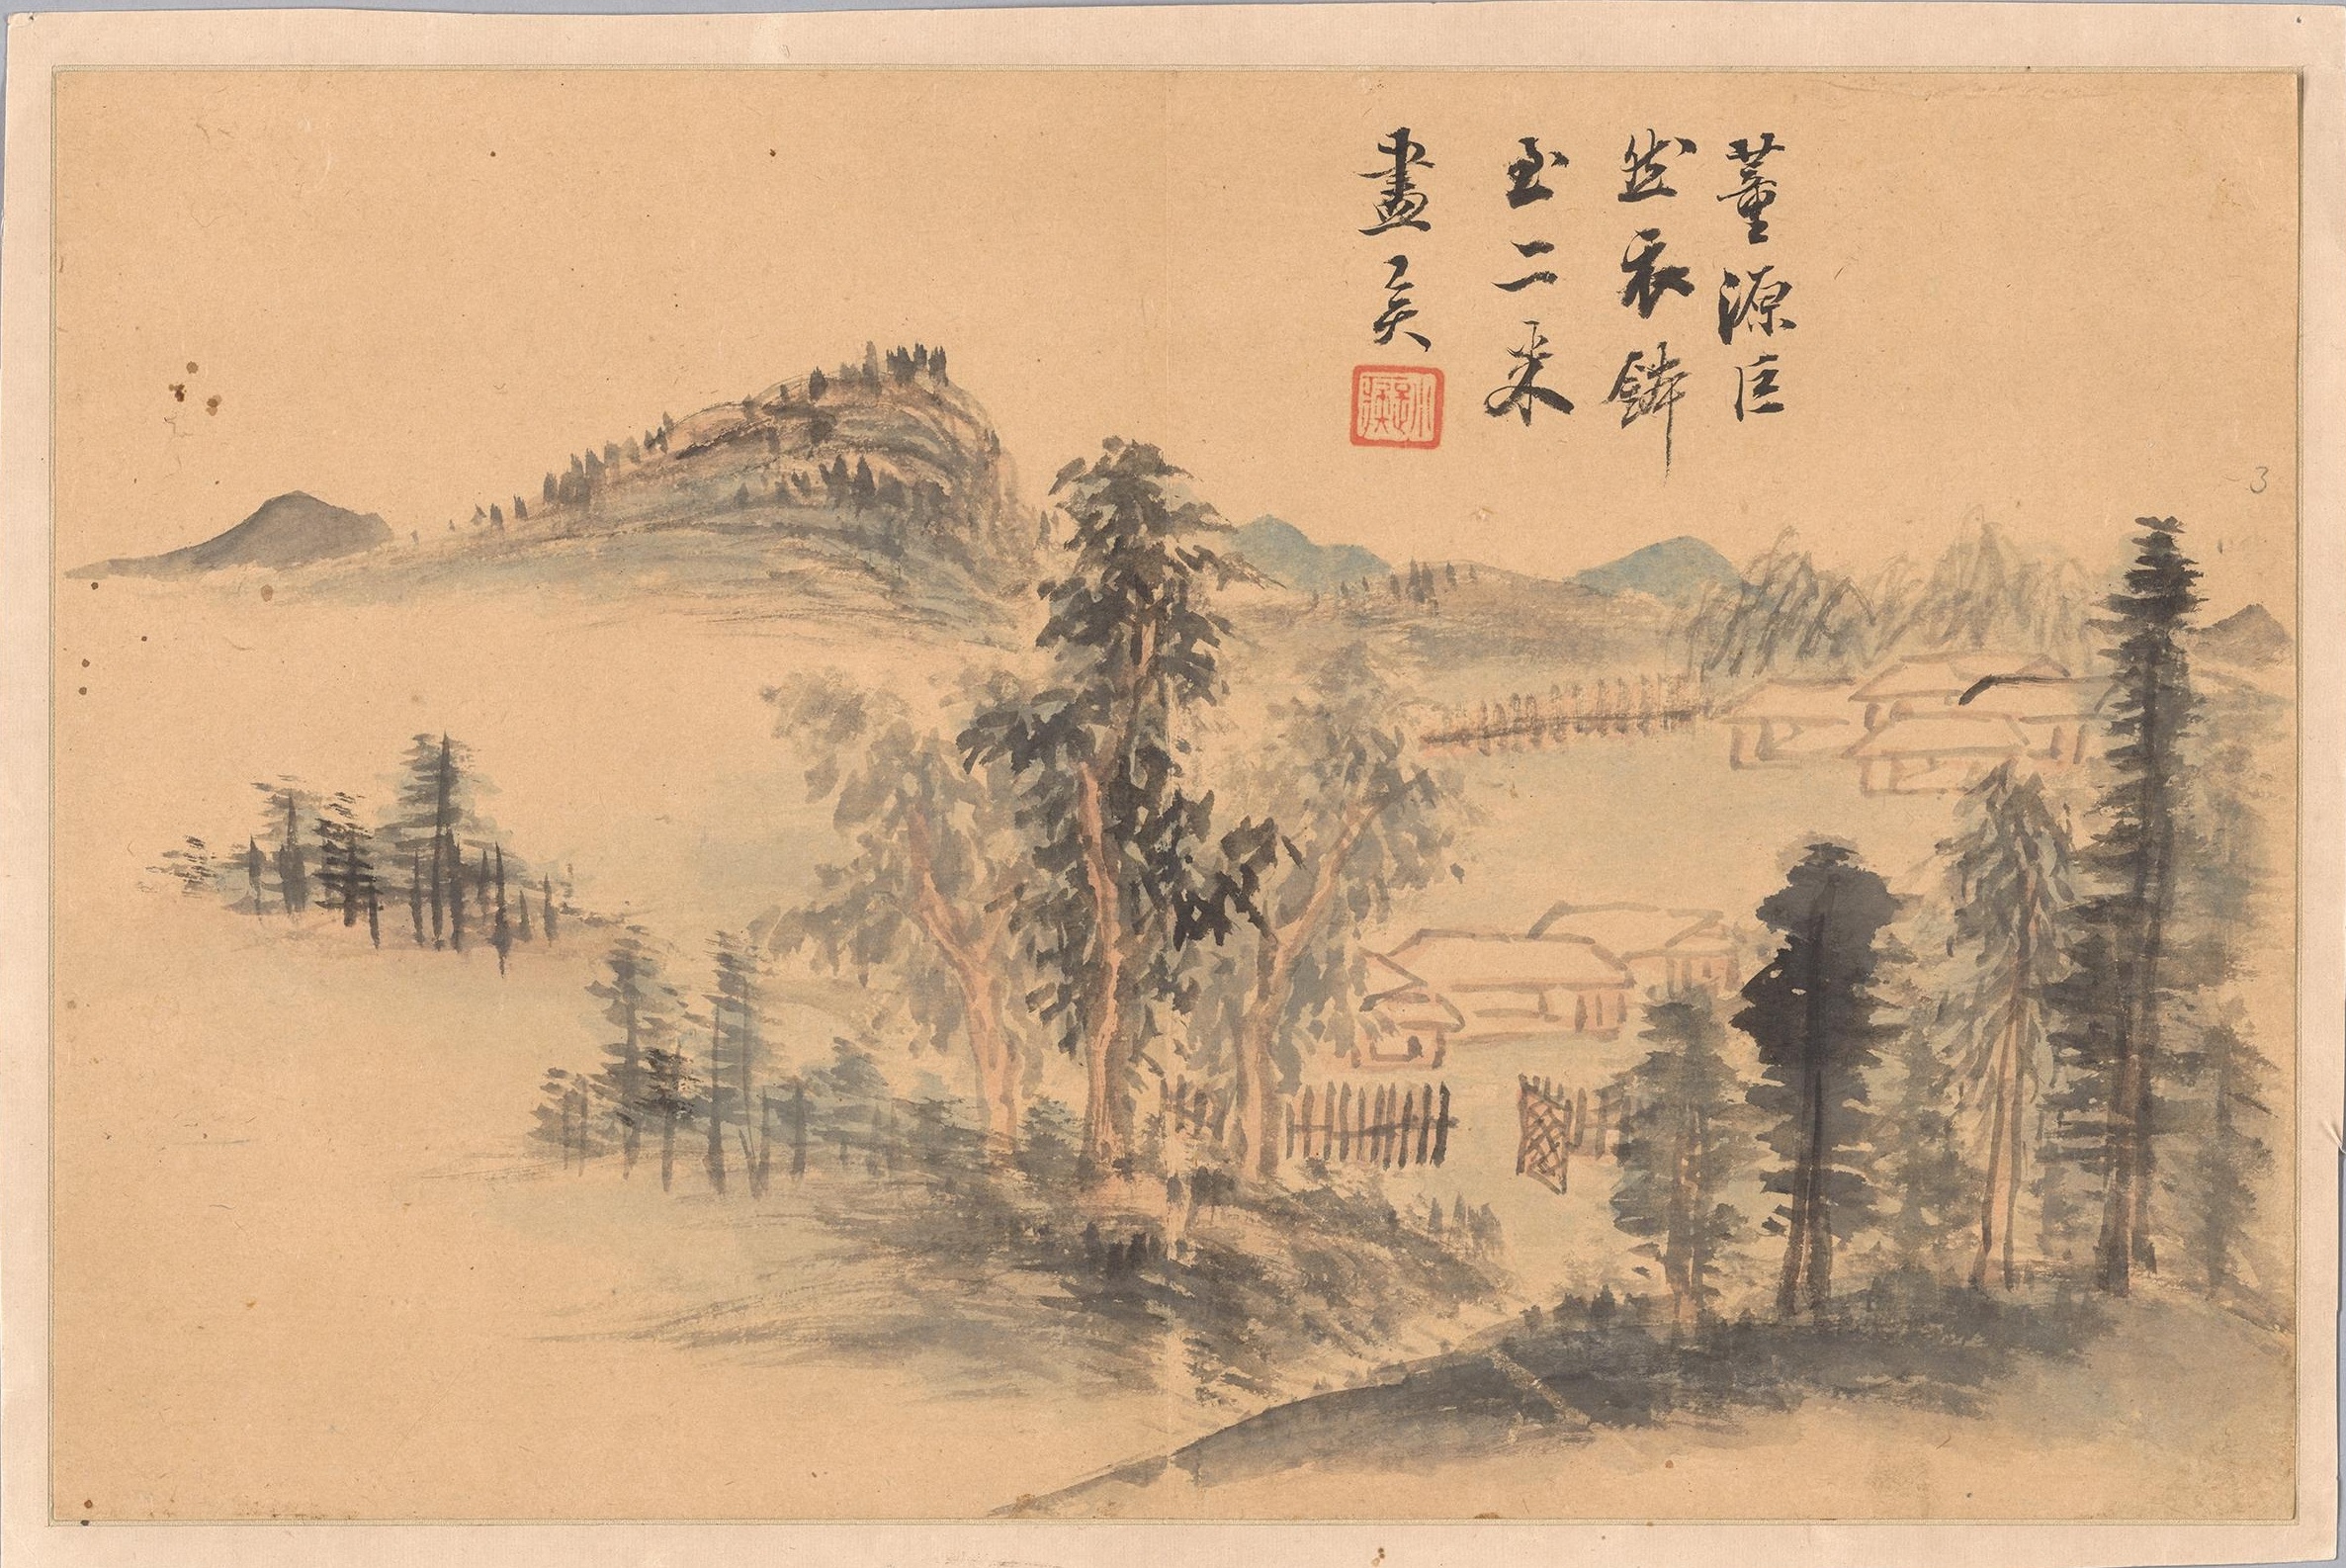 董源巨
然衣鉢
至二米
畫矣
3